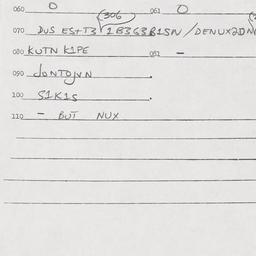 060 0 061 0
306
070 DUS EST+T3 1B3G3B1SN / DENUX2DN
080 KUTN K1PE 081 -
090 JONTOJVN .
100 S1K1S .
110 - BUT NUX